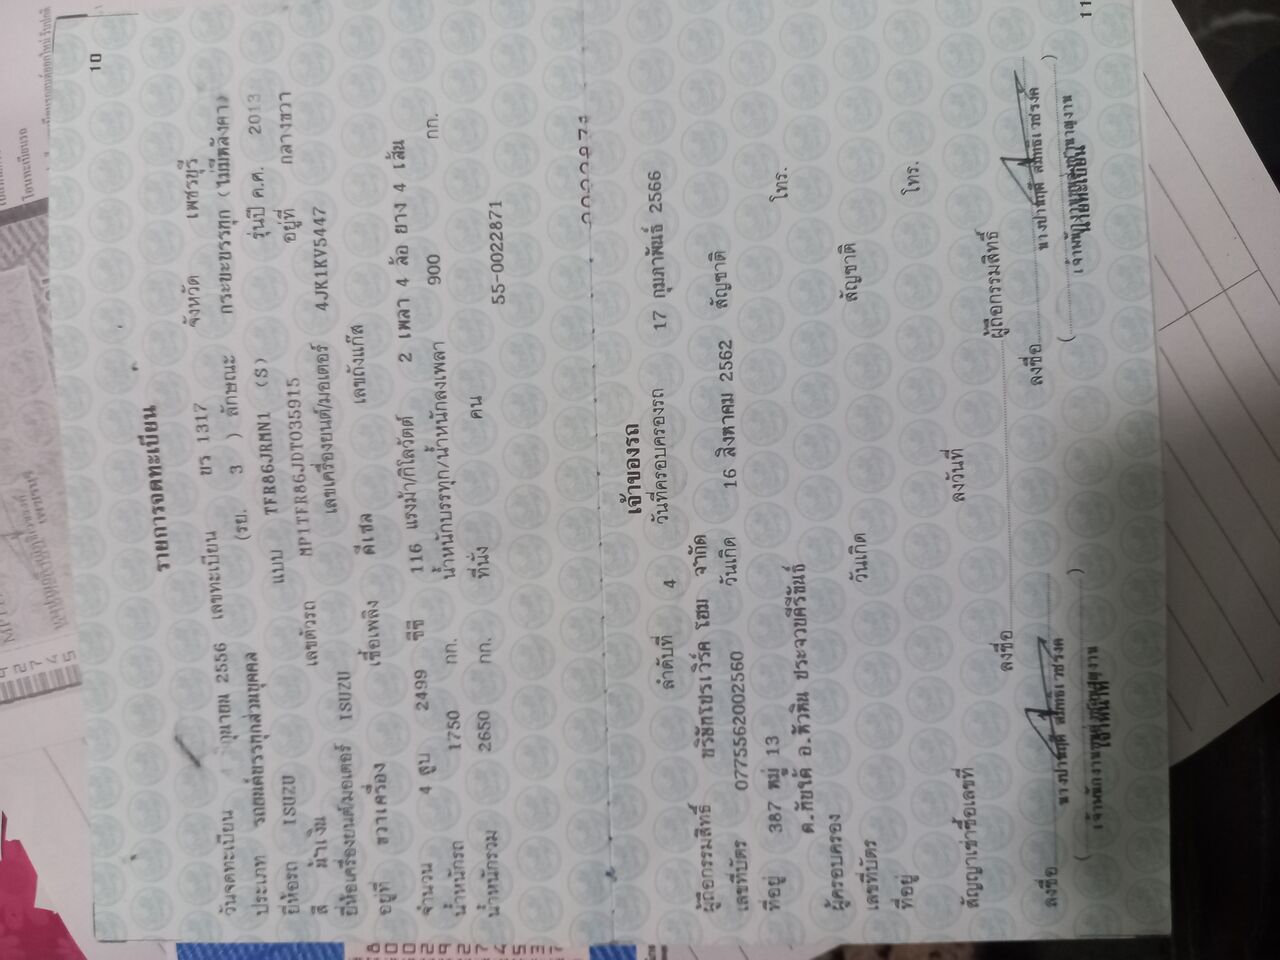 10
รายการจดทะเบียน
วันจดทะเบียน มิถุนายน 2556 เลขทะเบียน บร 1317 จังหวัด เพชรบุรี
ประเภท รถยนต์บรรทุกส่วนบุคคล (รย. 3 ) ลักษณะ กระบะบรรทุก (ไม่มีหลังคา)
ยี่ห้อรถ ISUZU แบบ TFR86JRMN1 (S) รุ่นปี ค.ศ. 2013
สี น้ำเงิน เลขตัวรถ MP1TFR86JDT035915 อยู่ที่ กลางขวา
ยี่ห้อเครื่องยนต์/มอเตอร์ ISUZU เลขเครื่องยนต์/มอเตอร์ 4JK1KV5447
อยู่ที่ ขวาเครื่อง เชื้อเพลิง ดีเซล เลขถังแก๊ส
จำนวน 4 สูบ 2499 ซีซี 116 แรงม้า/กิโลวัตต์ 2 เพลา 4 ล้อ ยาง 4 เส้น
น้ำหนักรถ 1750 กก. น้ำหนักบรรทุก/น้ำหนักลงเพลา 900 กก.
น้ำหนักรวม 2650 กก. ที่นั่ง คน
55-0022871
เจ้าของรถ
ลำดับที่ 4 วันที่ครอบครองรถ 17 กุมภาพันธ์ 2566
ผู้ถือกรรมสิทธิ์ บริษัทโปรเวิร์ค โฮม จำกัด
เลขที่บัตร 0775562002560 วันเกิด 16 สิงหาคม 2562 สัญชาติ
ที่อยู่ 387 หมู่ 13 โทร.
ต.ทับใต้ อ.หัวหิน ประจวบคีรีขันธ์
ผู้ครอบครอง
เลขที่บัตร วันเกิด สัญชาติ
ที่อยู่ โทร.
สัญญาเช่าซื้อเลขที่ ลงวันที่
ลงชื่อ ผู้ถือกรรมสิทธิ์
ลงชื่อ ลงชื่อ
นายทะเบียน
11